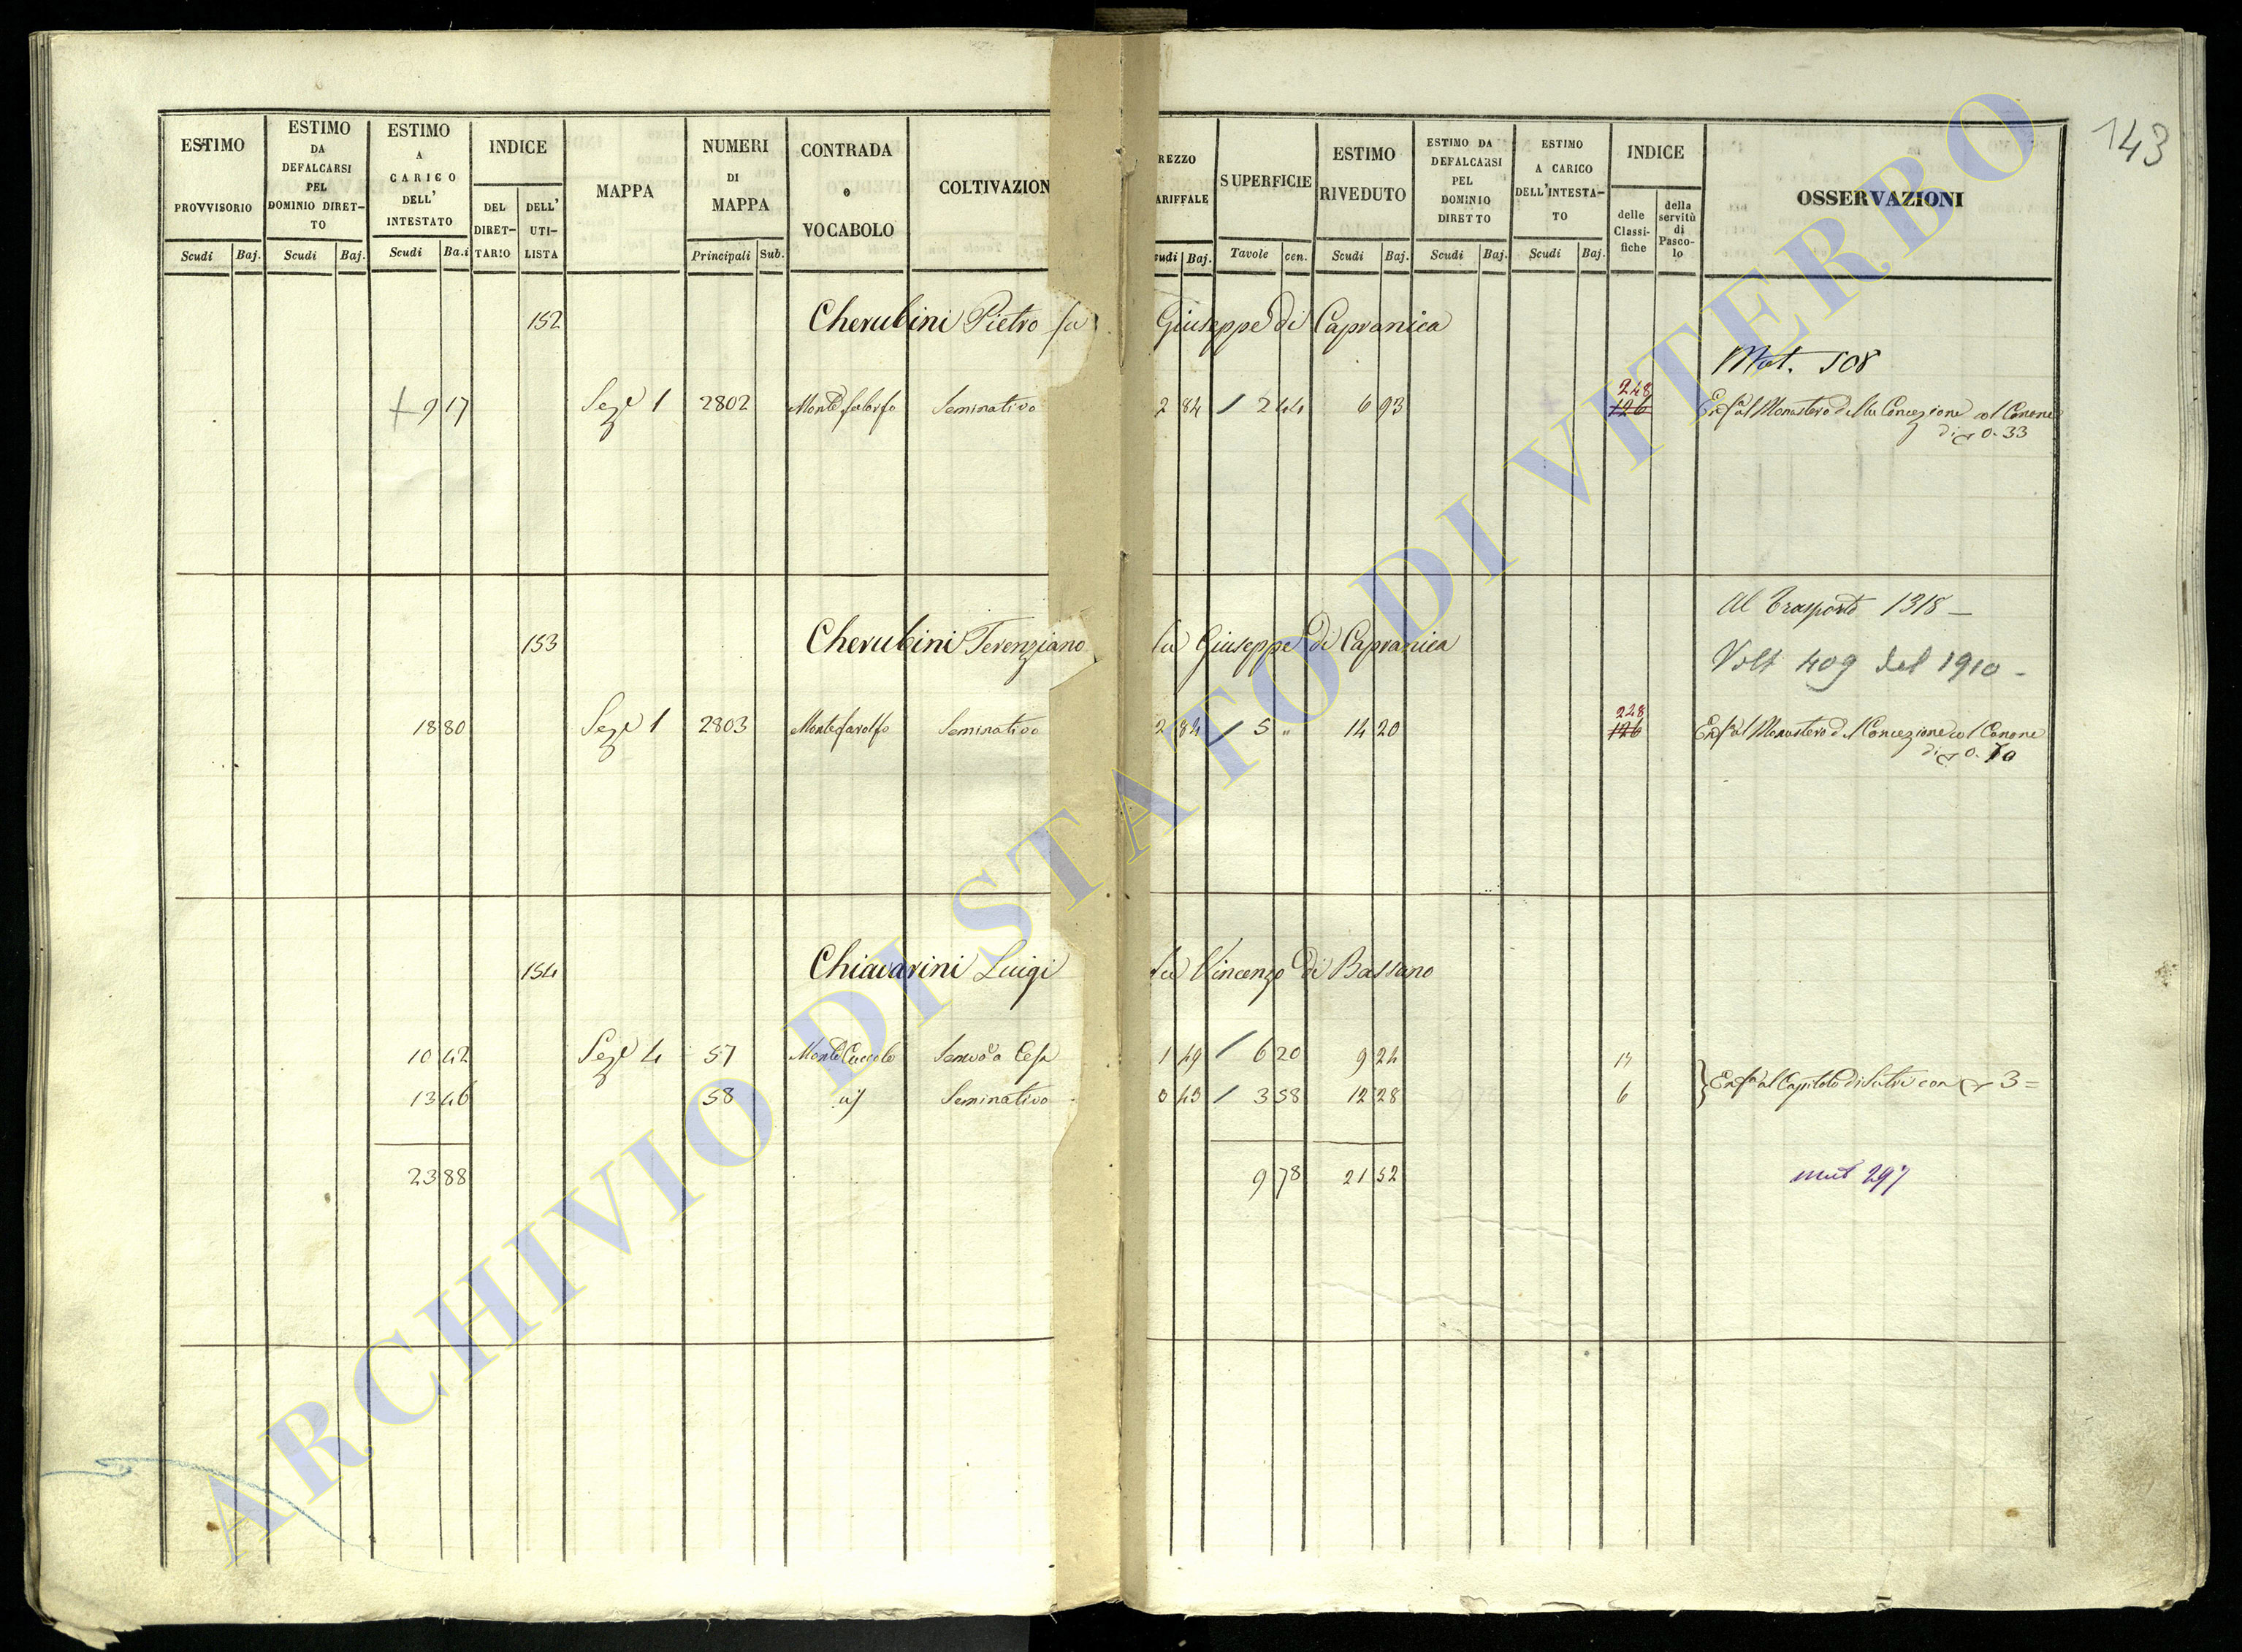 143
ESTIMO PROVVISORIO ESTIMO DA DEFALCARSI PEL DOMINIO DIRET-TO ESTIMO A CARICO DELL' INTESTATO INDICE MAPPA NUMERI DI MAPPA CONTRADA o VOCABOLO COLTIVAZION REZZO ARIFFALE SUPERFICIE ESTIMO RIVEDUTO ESTIMO DA DEFALCARSI PEL DOMINIO DIRETTO ESTIMO A CARICO DELL'INTESTA-TO INDICE OSSERVAZIONI
DEL DIRET-TARIO DELL' UTI-LISTA delle Classi-fiche della servitù di Pasco-lo
Scudi Baj. Scudi Baj. Scudi Ba.i Principali Sub. udi Baj. Tavole cen. Scudi Baj. Scudi Baj. Scudi Baj.
152 Cherubini Pietro fu Giuseppe di Capranica
Mat. 508
248
9 17 Sez.e 1 2802 Seminativo 2 84 / 2 44 6 93 126 Enf.a al Monastero della Concezione col Canone
di 0.33
Al Trasporto 1318 —
153 Cherubini Terenziano fu Giuseppe di Capranica
Volt 409 del 1910 -
228
18 80 Sez.e 1 2803 Montefarolfo Seminativo 2 84 / 5 " 14 20 126 Enf.a al Monastero d. Concezione col Canone
di 0.70
154 Chiavarini Luigi fu Vincenzo di Bassano
10 42 Sez.e 4 57 Monte Cuccolo 1 49 / 6 20 9 24
13 46 58 id Seminativo 0 43 / 3 58 12 28 6 Enf.a al Capitolo di Sutri con 3 =
23 88 9 78 21 52 mut 297
ARCHIVIO DI STATO DI VITERBO